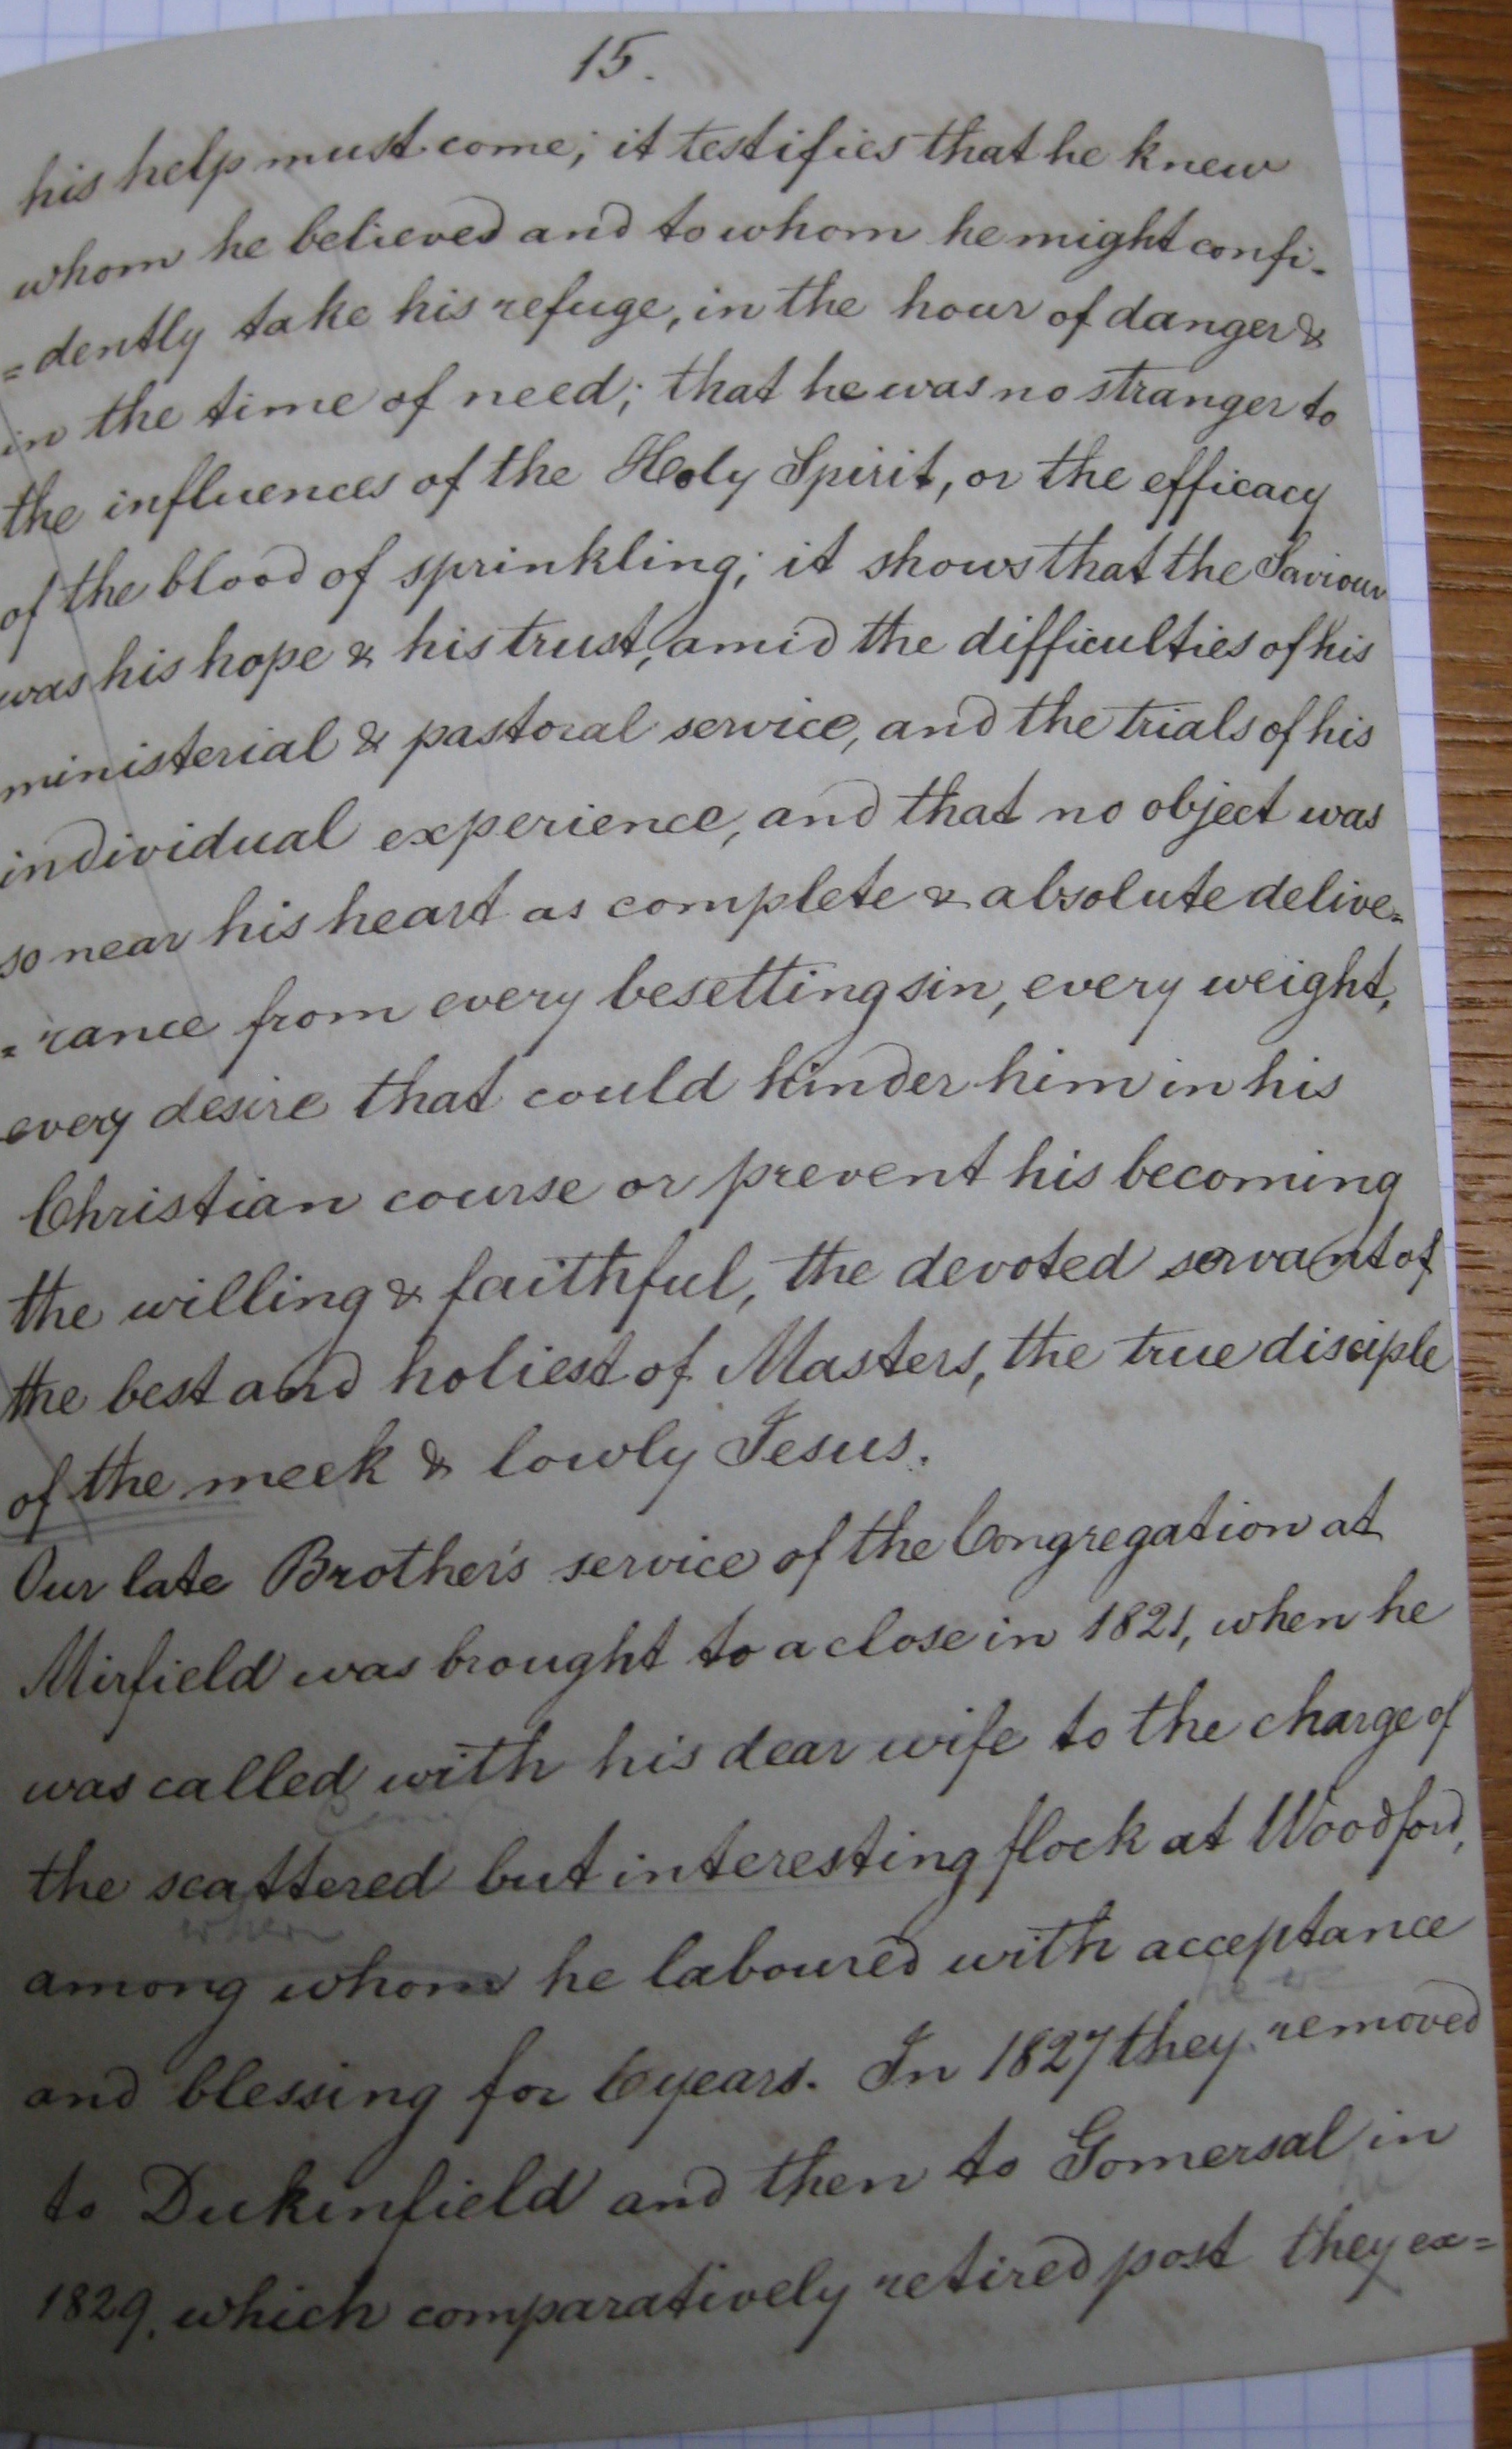 15.
his help must come; it testifies that he knew
whom he believed and to whom he might confi-
=dently take his refuge, in the hour of danger &
in the time of need; that he was no stranger to
the influences of the Holy Spirit, or the efficacy
of the blood of sprinkling; it shows that the Saviour
was his hope & his trust, amid the difficulties of his
ministerial & pastoral service, and the trials of his
individual experience, and that no object was
so near his heart as complete & absolute delive=
=rance from every besetting sin, every weight,
every desire that could hinder him in his
Christian course or prevent his becoming
the willing & faithful, the devoted servant of
the best and holiest of Masters, the true disciple
of the meek & lowly Jesus.
Our late Brother's service of the Congregation at
Mirfield was brought to a close in 1821, when he
was called with his dear wife to the charge of
the scattered but interesting flock at Woodford,
where
among whom he laboured with acceptance
and blessing for 6 years. In 1827 they removed
to Dukinfield and then to Gomersal in
he
1829. which comparatively retired post they ex=